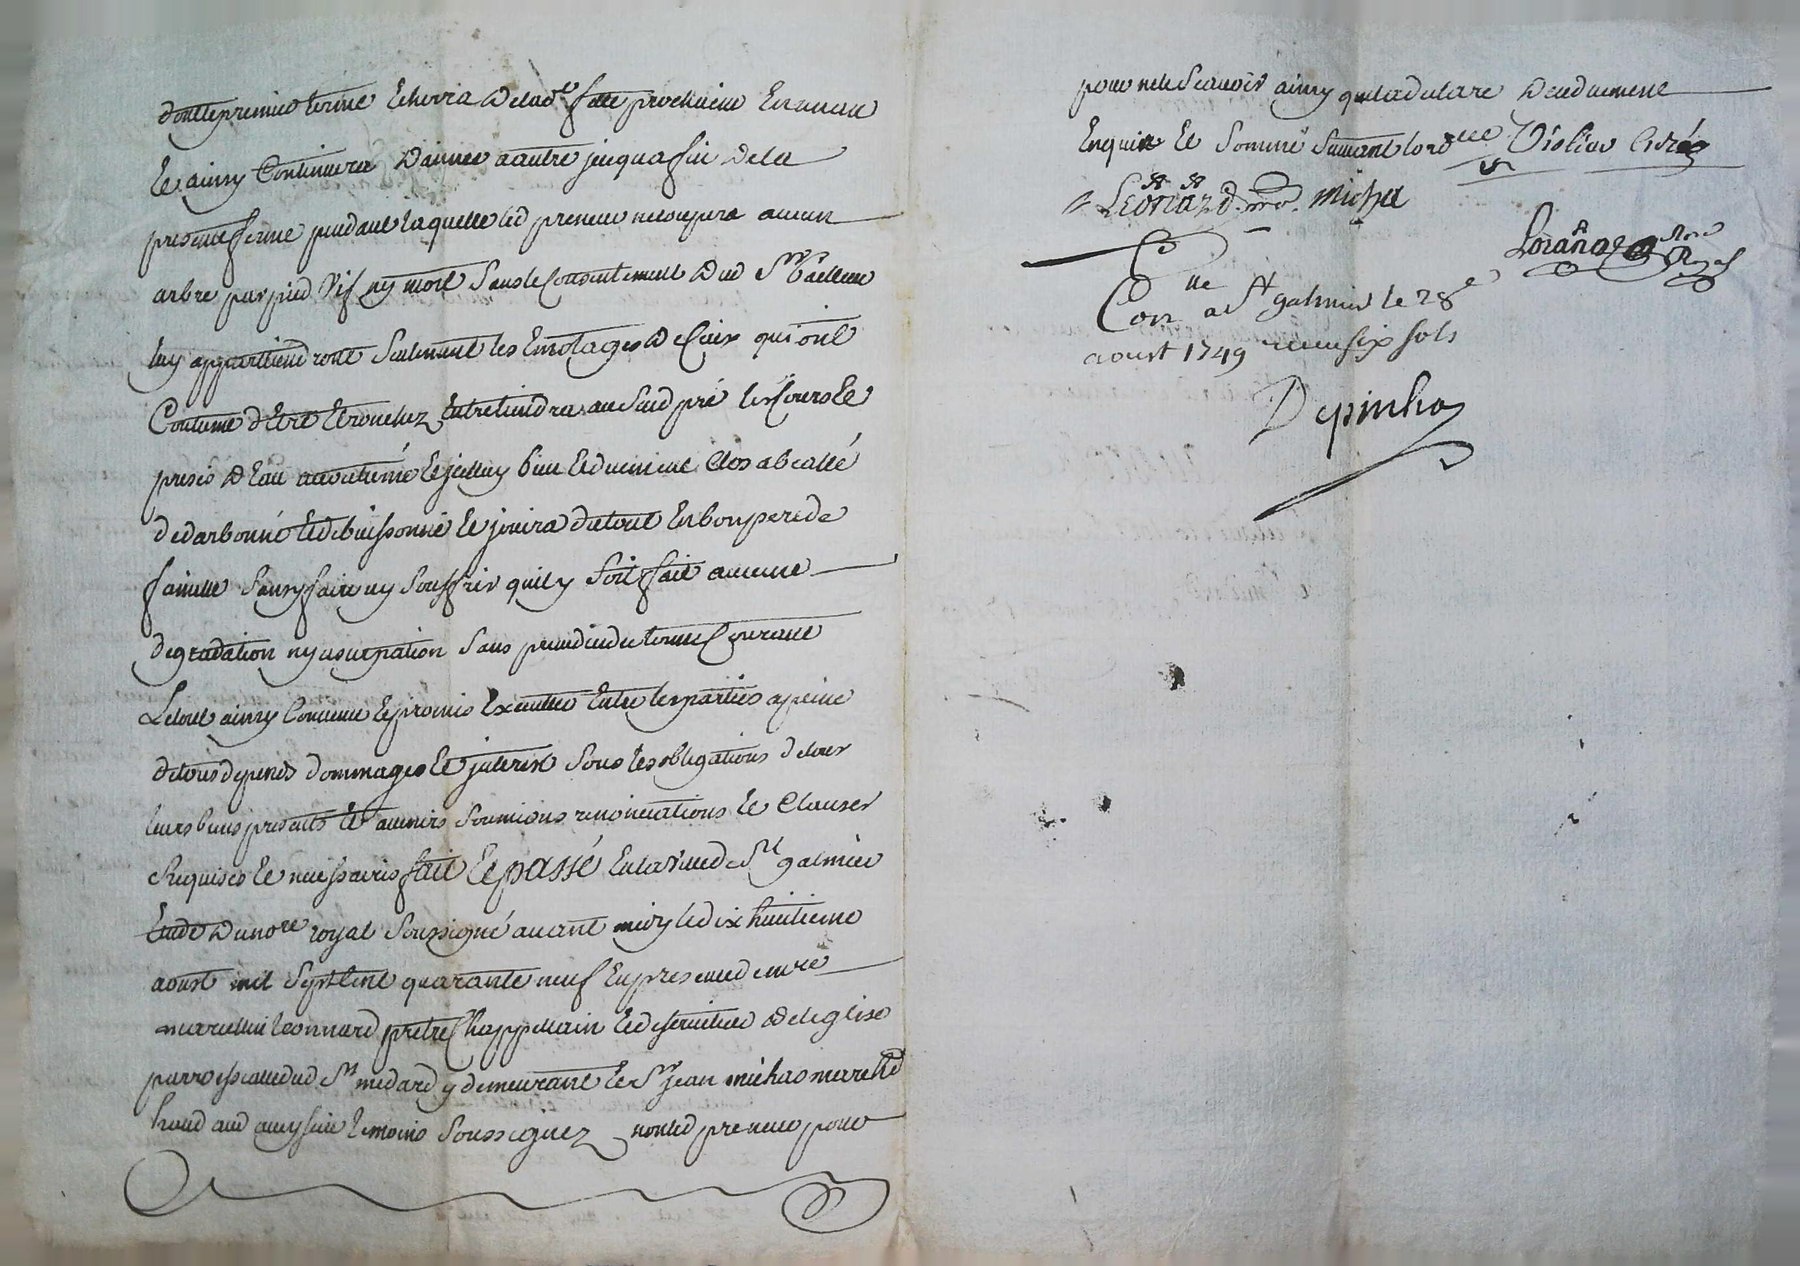 dont le premier terme echerra a lad.te fete prochaine en un an
et ainsy continuera d'année a autre jusqua fin de la
presente ferme pendant laquelle led preneur ne coupera aucun
arbre par pied vif ny mort sans le consentement dud Sr bailleur
luy appartiendront seulement les emotages de ceux qui ont
coutume d'etre etronchez, entretiendra aussud pré les cours et
prises d'eau accoutumé et jcelluy bien et duement clos
dedarbonné et debuissonné et jouira du tout en bon pere de
famille sans y faire ny souffrir quil y soit fait aucune
degradation ny usurpation sans prejudice du terme courant
Le tout ainsy convenu et promis executer entre les parties a peine
de tous depends dommages et jnterest sous les obligations de tous
leurs biens presents et avenirs soumissions renonciations et clauses
Requises et necessaires fait et passé en la ville de St galmier
Etude du nore royal soussigné avant midy le dix huitieme
aoust mil sept cent quarante neuf en presence de mre
marcellin leonnard pretre chappellain et deservitteur de leglise
parroissialle dud St medard y demeurant et Sr jean michas march
soussignez non led preneur pour
pour ne le scavoir ainsy quil a declaré deuement
Enquis et sommé suivant lord.ce Violier curé
Leonard. michas
Lorange Nore Royal
Con.lle a St galmier le 28e
aoust 1749 receu six sols
Depinhas